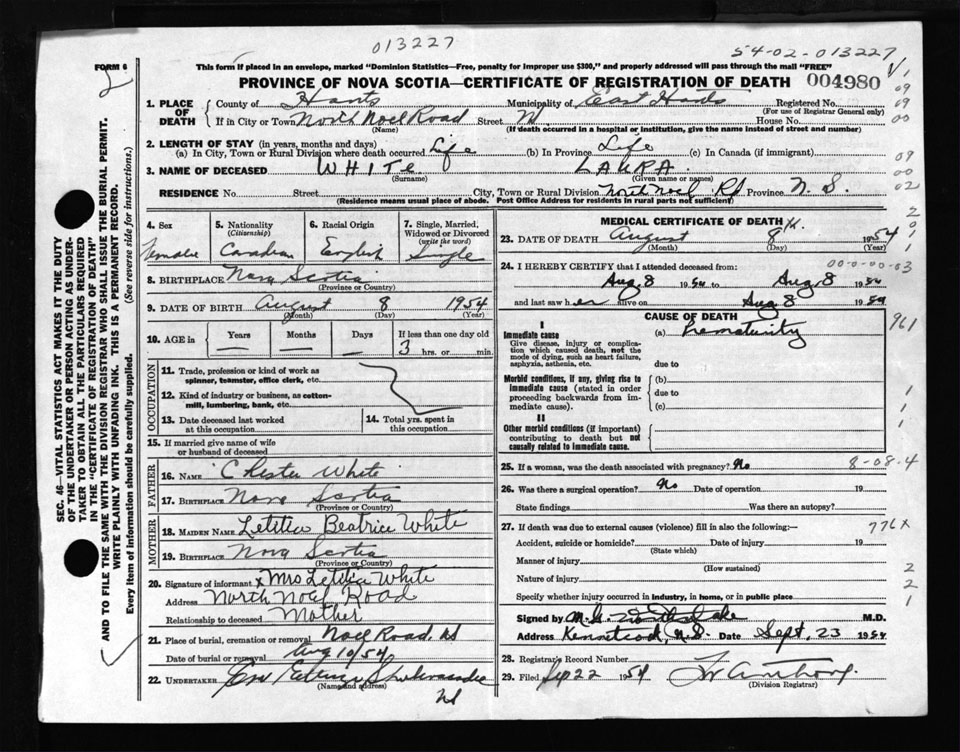 013227
54-02-013227
FORM 6
This form if placed in an envelope, marked “Dominion Statistics—Free, penalty for improper use $300,” and properly addressed will pass through the mail “FREE”
PROVINCE OF NOVA SCOTIA—CERTIFICATE OF REGISTRATION OF DEATH 004980
1. PLACE OF DEATH County of Hants Municipality of East Hants Registered No.
(For use of Registrar General only)
If in City or Town North Noel Road Street N. House No.
(Name) (If death occurred in a hospital or institution, give the name instead of street and number)
2. LENGTH OF STAY (in years, months and days)
(a) In City, Town or Rural Division where death occurred Life (b) In Province Life (c) In Canada (if immigrant)
3. NAME OF DECEASED WHITE LAURA
(Surname) (Given name or names)
RESIDENCE No. Street City, Town or Rural Division North Noel Rd Province N. S.
(Residence means usual place of abode. Post Office Address for residents in rural parts not sufficient)
SEC. 46—VITAL STATISTICS ACT MAKES IT THE DUTY
OF THE UNDERTAKER OR PERSON ACTING AS UNDER-
TAKER TO OBTAIN ALL THE PARTICULARS REQUIRED
IN THE “CERTIFICATE OF REGISTRATION OF DEATH”
AND TO FILE THE SAME WITH THE DIVISION REGISTRAR WHO SHALL ISSUE THE BURIAL PERMIT.
WRITE PLAINLY WITH UNFADING INK. THIS IS A PERMANENT RECORD.
Every item of information should be carefully supplied. (See reverse side for instructions.)
4. Sex 5. Nationality (Citizenship) 6. Racial Origin 7. Single, Married, Widowed or Divorced (write the word)
Female Canadian English Single
8. BIRTHPLACE Nova Scotia
(Province or Country)
9. DATE OF BIRTH August 8 1954
(Month) (Day) (Year)
10. AGE in Years Months Days If less than one day old
3 hrs. or min.
OCCUPATION
11. Trade, profession or kind of work as spinner, teamster, office clerk, etc.
12. Kind of industry or business, as cotton-mill, lumbering, bank, etc.
13. Date deceased last worked at this occupation 14. Total yrs. spent in this occupation
15. If married give name of wife or husband of deceased
FATHER
16. NAME Chester White
17. BIRTHPLACE Nova Scotia
(Province or Country)
MOTHER
18. MAIDEN NAME Letitia Beatrice White
19. BIRTHPLACE Nova Scotia
(Province or Country)
20. Signature of informant x Mrs Letitia White
Address North Noel Road
Relationship to deceased Mother
21. Place of burial, cremation or removal Noel Road, NS
Date of burial or removal Aug 10/54
22. UNDERTAKER
(Name and address)
MEDICAL CERTIFICATE OF DEATH
23. DATE OF DEATH August 8th. 1954
(Month) (Day) (Year)
24. I HEREBY CERTIFY that I attended deceased from: 00-0-00-03
Aug. 8 1954 to Aug. 8 1954
and last saw her alive on Aug 8 1954
CAUSE OF DEATH 961
I
Immediate cause (a) Prematurity
Give disease, injury or complication which caused death, not the mode of dying, such as heart failure, asphyxia, asthenia, etc. due to
Morbid conditions, if any, giving rise to immediate cause (stated in order proceeding backwards from immediate cause). (b) due to (c)
II
Other morbid conditions (if important) contributing to death but not causally related to immediate cause.
25. If a woman, was the death associated with pregnancy? No 8-08-4
26. Was there a surgical operation? No Date of operation 19
State findings Was there an autopsy?
27. If death was due to external causes (violence) fill in also the following:— 776X
Accident, suicide or homicide? Date of injury 19
(State which)
Manner of injury
(How sustained)
Nature of injury
Specify whether injury occurred in industry, in home, or in public place
Signed by M.D.
Address Kennetcook, N.S. Date Sept. 23 1954
28. Registrar's Record Number
29. Filed Sep 22 1954
(Division Registrar)